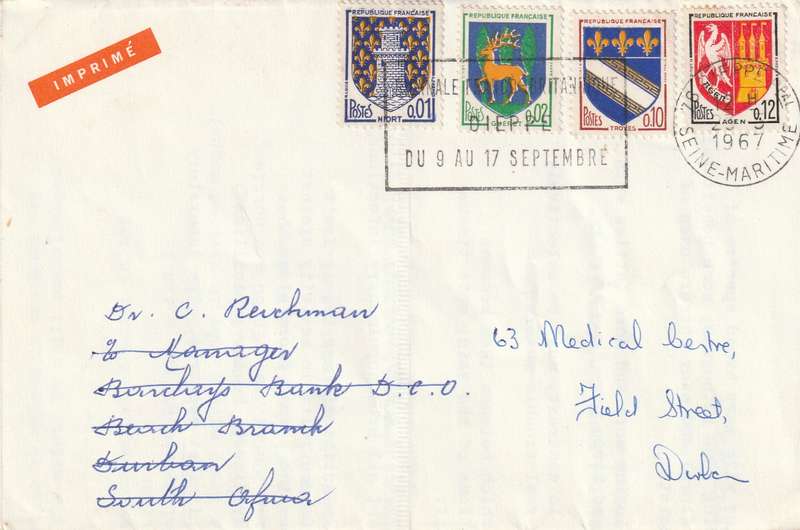 IMPRIMÉ
REPUBLIQUE FRANÇAISE
POSTES 0.01
NIORT
REPUBLIQUE FRANÇAISE
POSTES 0.02
GUERET
REPUBLIQUE FRANÇAISE
POSTES 0.10
TROYES
REPUBLIQUE FRANÇAISE
POSTES 0.12
AGEN
DIEPPE
DU 9 AU 17 SEPTEMBRE
DIEPPE
1967
SEINE-MARITIME
Dr. C. Reichman
% Manager
Barclays Bank D.C.O.
Beach Branch
Durban
South Africa
63 Medical Centre,
Field Street,
Durban